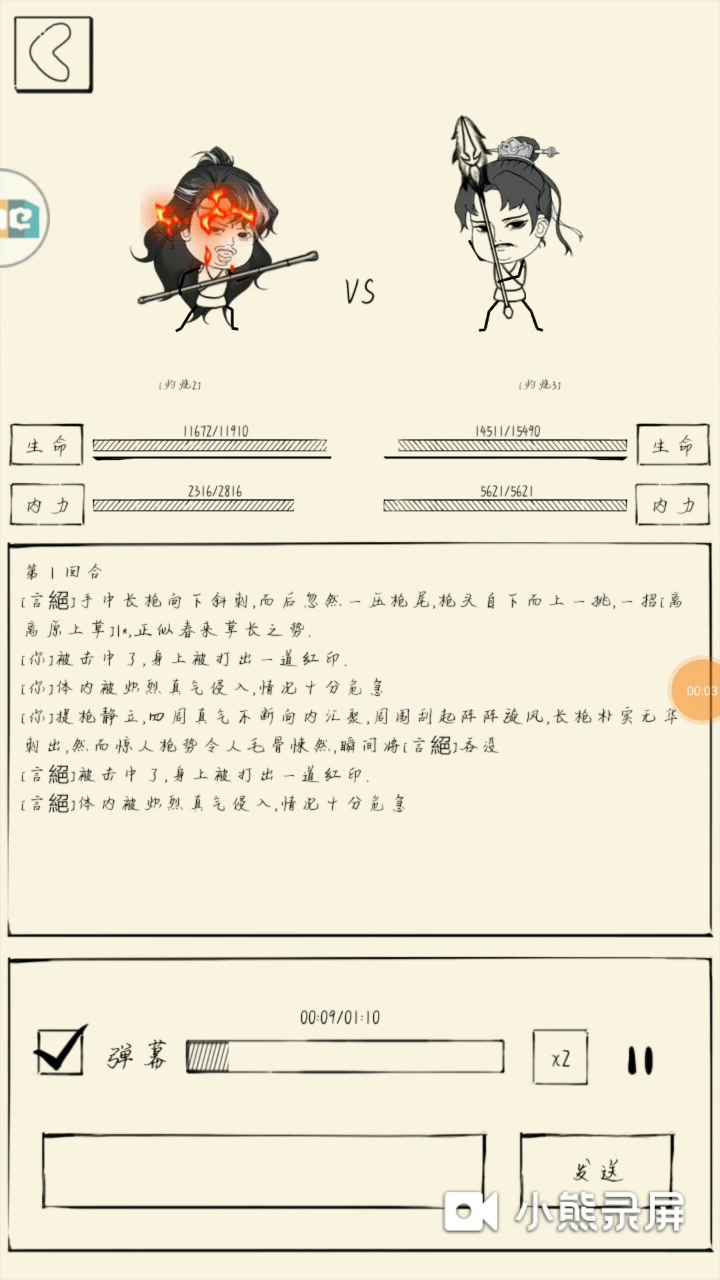 VS
[灼烧2]
[灼烧3]
生命
11672/11910
14511/15490
生命
内力
2316/2816
5621/5621
内力
第1回合
[言絕]手中长枪向下斜刺,而后忽然一压枪尾,枪头自下而上一挑,一招[离
离原上草]1*,正似春来草长之势.
[你]被击中了,身上被打出一道红印.
[你]体内被炽烈真气侵入,情况十分危急
[你]提枪静立,四周真气不断向内汇聚,周围刮起阵阵旋风,长枪朴实无华
刺出,然而惊人枪势令人毛骨悚然,瞬间将[言絕]吞没
[言絕]被击中了,身上被打出一道红印.
[言絕]体内被炽烈真气侵入,情况十分危急
00:03
00:09/01:10
弹幕
x2
发送
小熊录屏